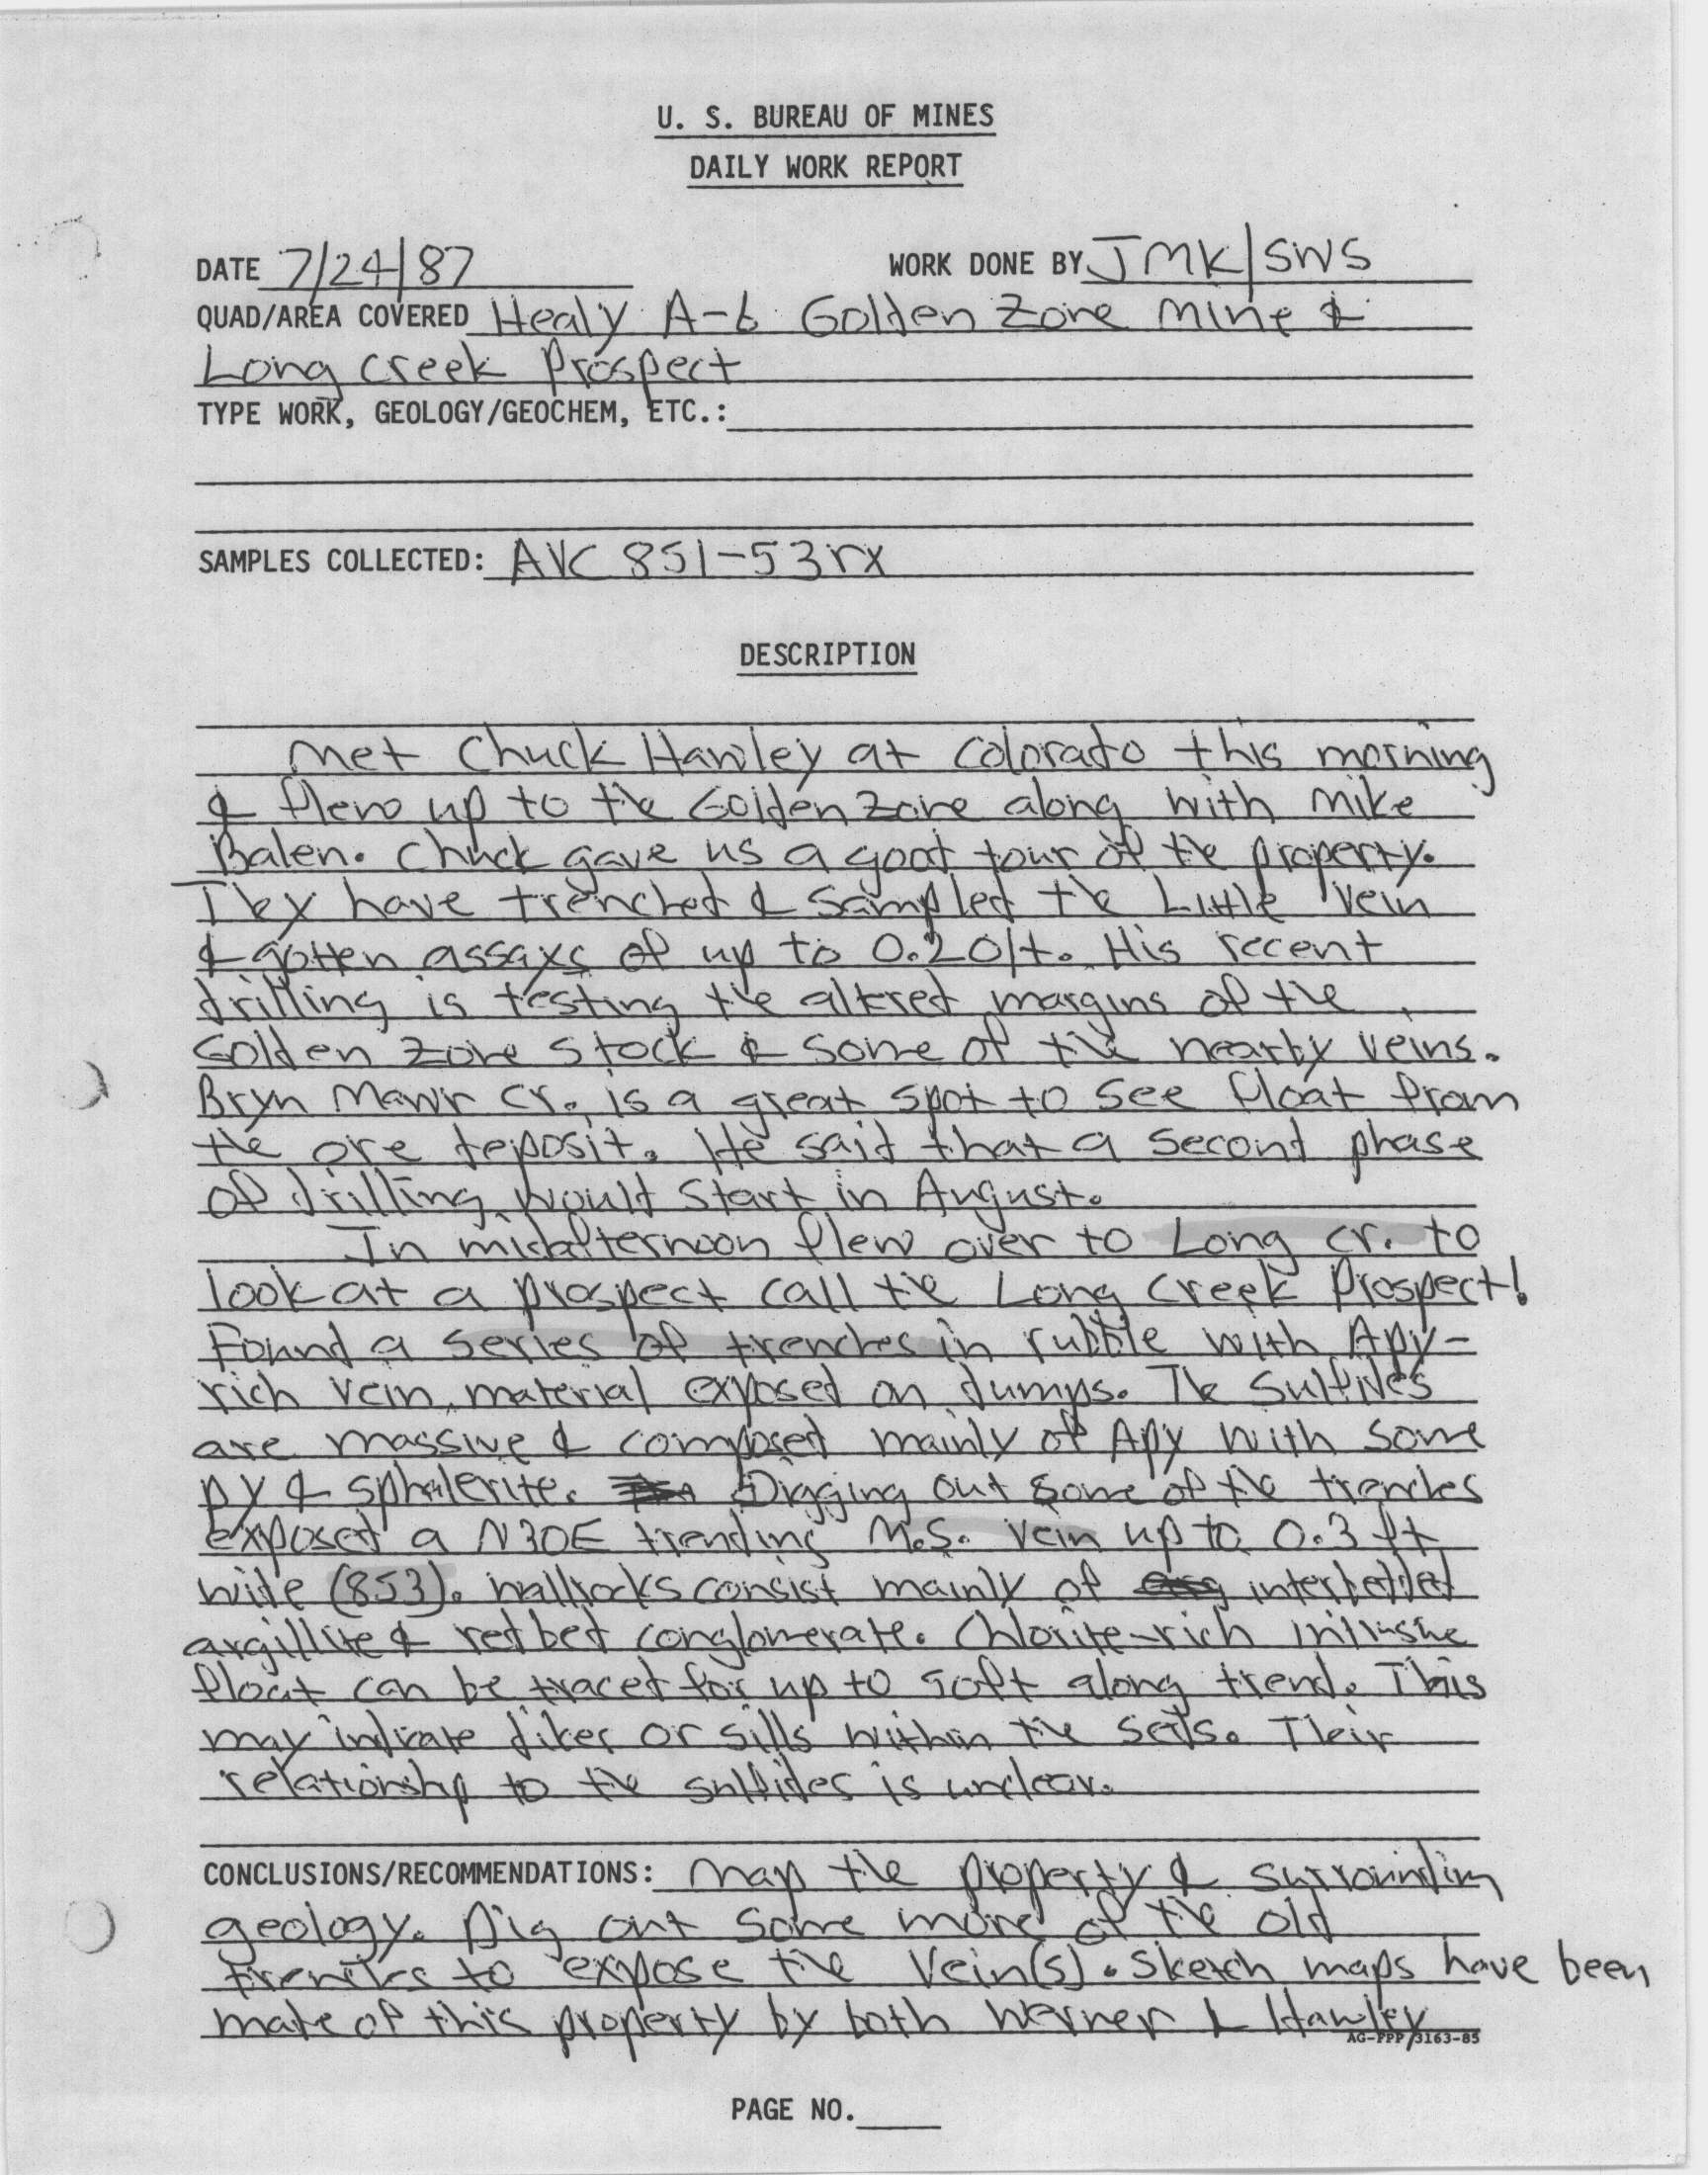 U. S. BUREAU OF MINES
DAILY WORK REPORT
DATE 7/24/87 WORK DONE BY JMK/SWS
QUAD/AREA COVERED Healy A-6 Golden Zone Mine &
Long Creek Prospect
TYPE WORK, GEOLOGY/GEOCHEM, ETC.:
SAMPLES COLLECTED: AVC 851-53rx
DESCRIPTION
Met Chuck Hawley at Colorado this morning
& flew up to the Golden Zone along with Mike
Balen. Chuck gave us a good tour of the property.
They have trenched & sampled the Little Vein
& gotten assays of up to 0.2 o/t. His recent
drilling is testing the altered margins of the
Golden Zone Stock & some of the nearby veins.
Bryn Mawr Cr. is a great spot to see float from
the ore deposit. He said that a second phase
of drilling would start in August.
In midafternoon flew over to Long Cr. to
look at a prospect call the Long Creek Prospect!
Found a series of trenches in rubble with Apy-
rich vein material exposed on dumps. The sulfides
are massive & composed mainly of Apy with some
py & sphalerite. Digging out some of the trenches
exposed a N30E trending M.S. vein up to 0.3 ft
wide (853). Wallrocks consist mainly of interbedded
argillite & red bed conglomerate. Chlorite-rich intrusive
float can be traced for up to 50ft along trend. This
may indicate dikes or sills within the seds. Their
relationship to the sulfides is unclear.
CONCLUSIONS/RECOMMENDATIONS: Map the property & surrounding
geology. Dig out some more of the old
trenches to expose the vein(s). Sketch maps have been
made of this property by both Werner & Hawley
AG-PPP/3163-85
PAGE NO.